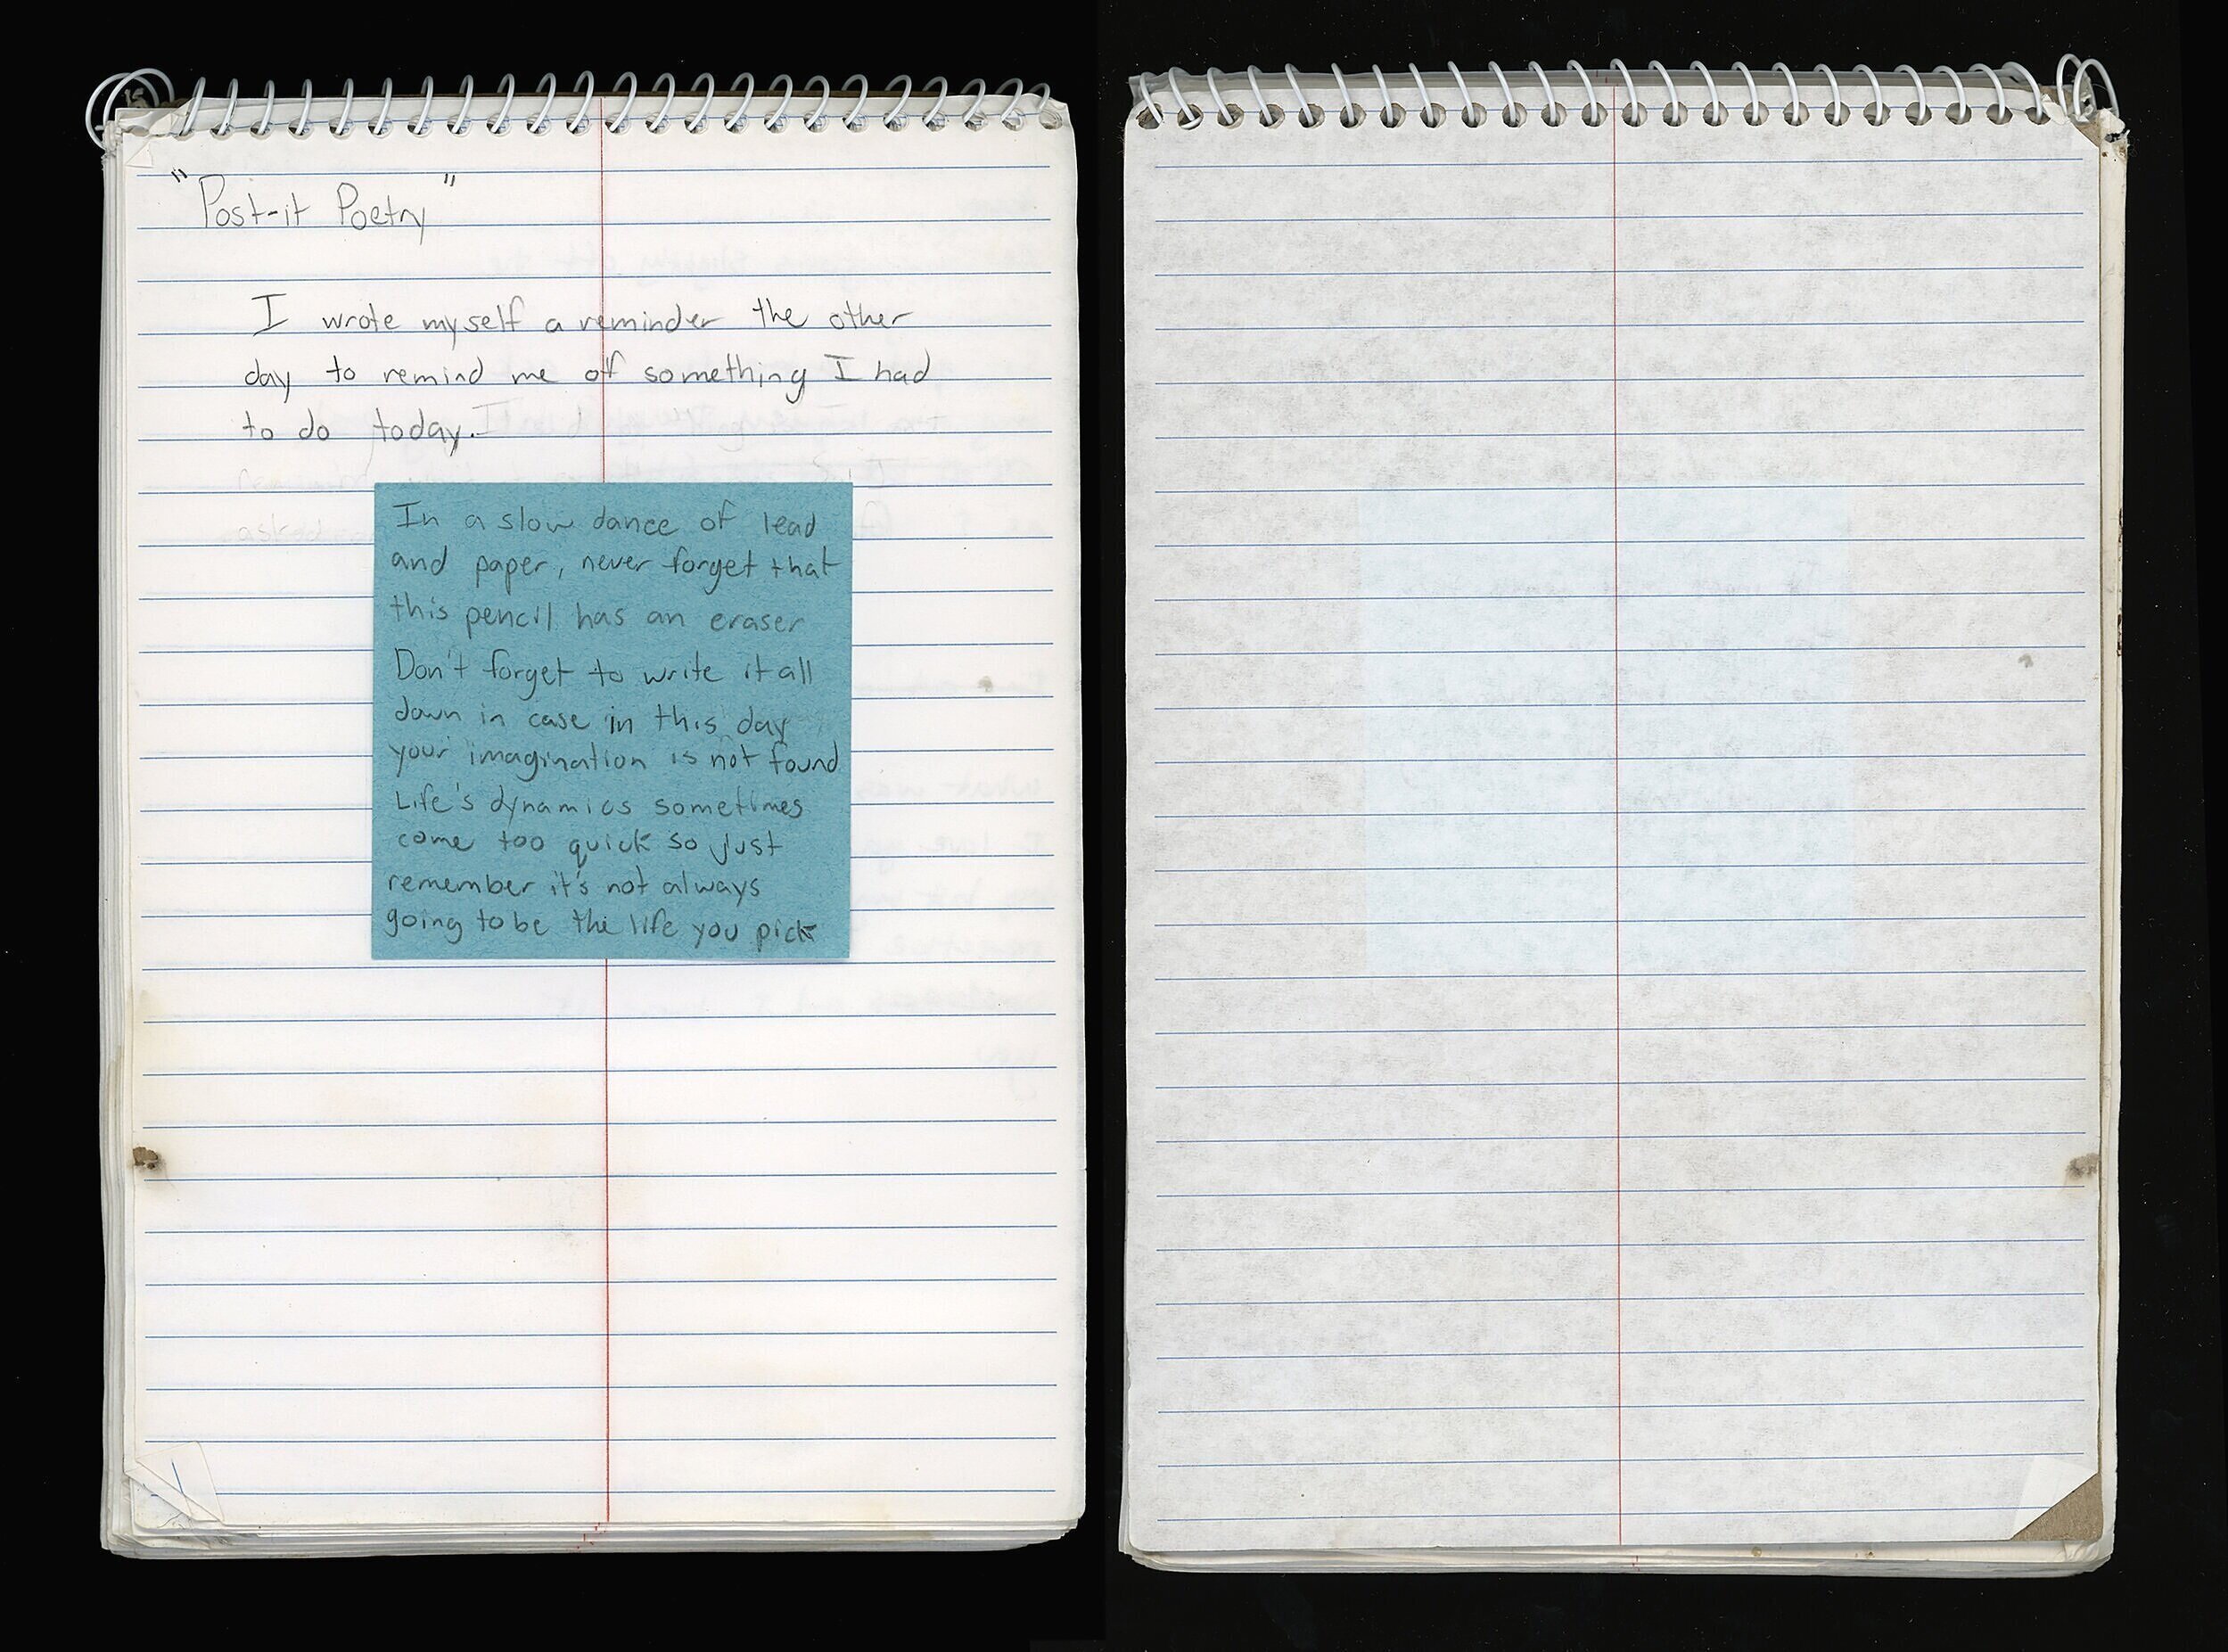 "Post-it Poetry"
I wrote myself a reminder the other
day to remind me of something I had
to do today.
In a slow dance of lead
and paper, never forget that
this pencil has an eraser
Don't forget to write it all
down in case in this day
your imagination is not found
Life's dynamics sometimes
come too quick so just
remember it's not always
going to be the life you pick